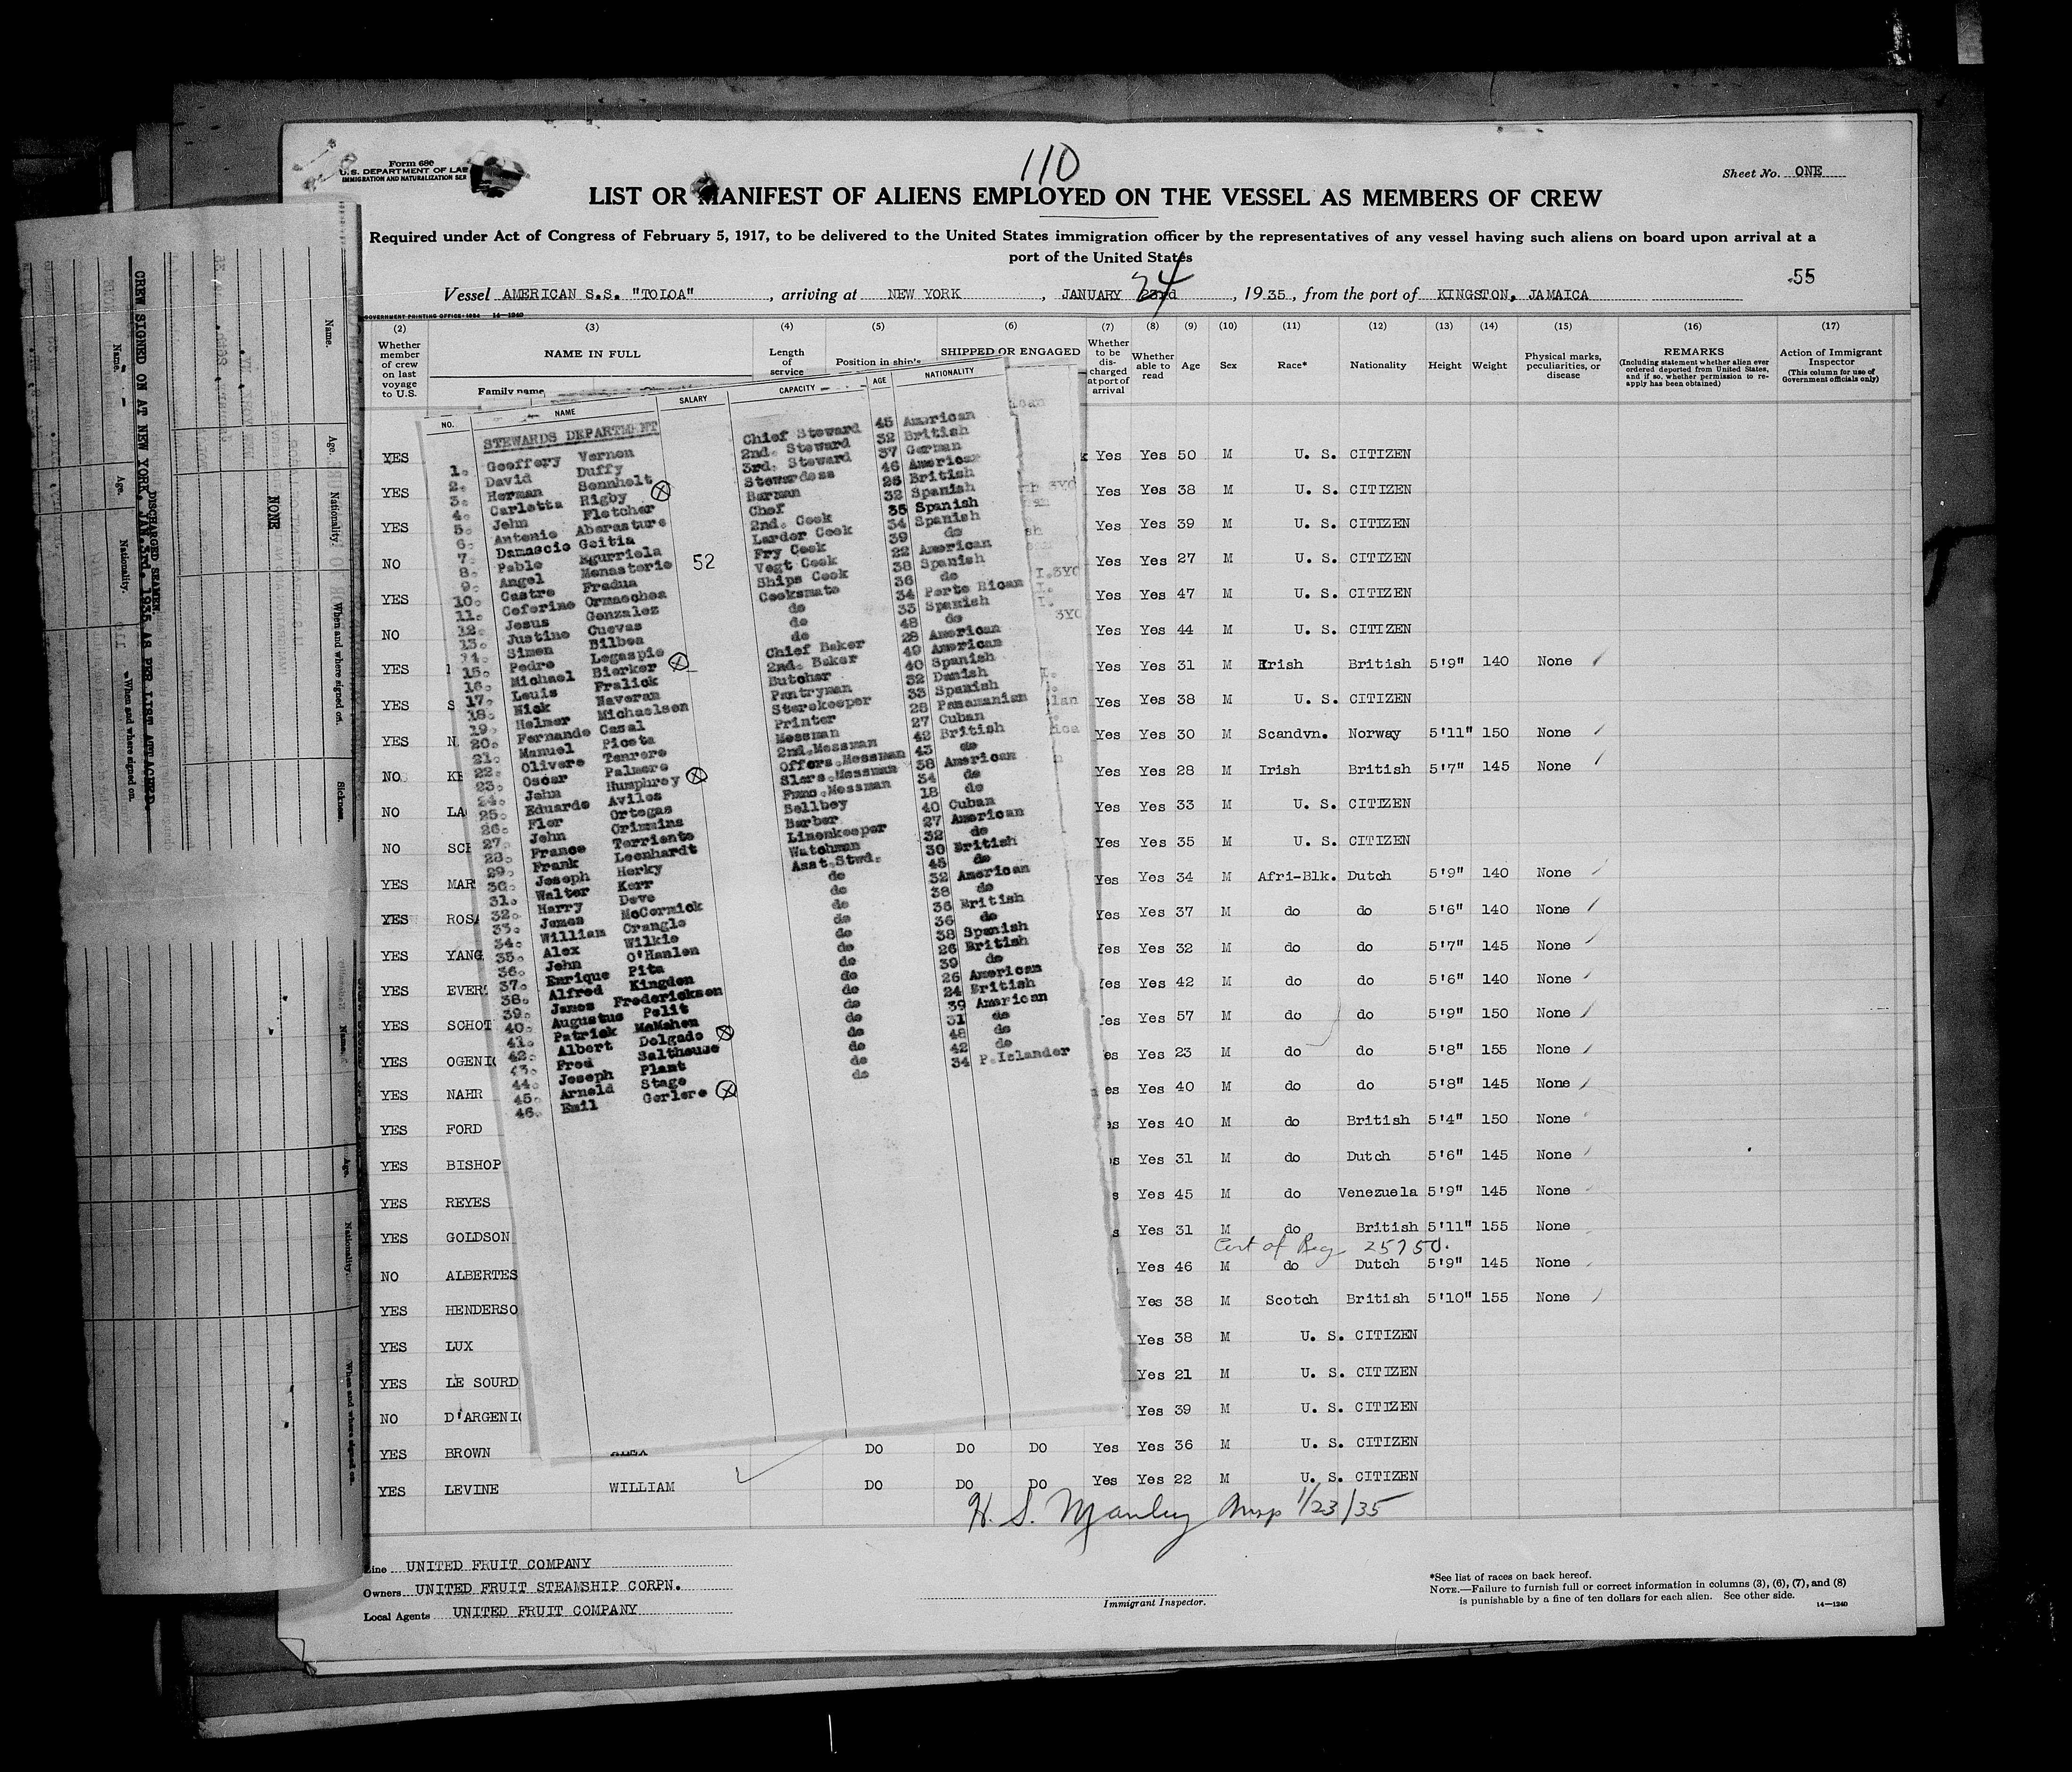 Form 680
U.S. DEPARTMENT OF LAB
IMMIGRATION AND NATURALIZATION SER
110
Sheet No. ONE
LIST OR MANIFEST OF ALIENS EMPLOYED ON THE VESSEL AS MEMBERS OF CREW
Required under Act of Congress of February 5, 1917, to be delivered to the United States immigration officer by the representatives of any vessel having such aliens on board upon arrival at a
port of the United States
55
Vessel AMERICAN S.S. "TOLOA", arriving at NEW YORK, JANUARY 23rd 24, 1935, from the port of KINGSTON, JAMAICA
GOVERNMENT PRINTING OFFICE: 1934 14—1240
(2) (3) (4) (5) (6) (7) (8) (9) (10) (11) (12) (13) (14) (15) (16) (17)
Whether member of crew on last voyage to U.S.
NAME IN FULL
Family name
Length of service
Position in ship's
SHIPPED OR ENGAGED
Whether to be discharged at port of arrival
Whether able to read
Age
Sex
Race*
Nationality
Height
Weight
Physical marks, peculiarities, or disease
REMARKS
(Including statement whether alien ever ordered deported from United States, and if so, whether permission to reapply has been obtained)
Action of Immigrant Inspector
(This column for use of Government officials only)
NO. NAME SALARY CAPACITY AGE NATIONALITY
STEWARDS DEPARTMENT
1. Geoffery Vernon Chief Steward 45 American
2. David Duffy 2nd. Steward 32 British
3. Herman Sonnholt 3rd. Steward 37 German
4. Carletta Rigby Stewardess 46 American
5. John Fletcher Barman 26 British
6. Antonio Aberasture Chef 32 Spanish
7. Damascio Goitia 2nd. Cook 35 Spanish
8. Pablo Egurriola Larder Cook 34 Spanish
9. Angel Monasterio Fry Cook 39 do
10. Castro Fradua Vegt Cook 22 American
11. Ceferino Ormaechea Ships Cook 38 Spanish
12. Jesus Gonzalez Cooksmate 36 do
13. Justino Cuevas do 34 Porto Rican
14. Simon Bilbea do 33 Spanish
15. Pedro Legaspie do 48 do
16. Michael Bierker Chief Baker 28 American
17. Louis Fralick 2nd. Baker 49 American
18. Nick Naveran Butcher 40 Spanish
19. Helmer Michaelsen Pantryman 32 Danish
20. Fernando Casal Storekeeper 33 Spanish
21. Manuel Picota Printer 28 Panamanian
22. Olivero Tenrero Messman 27 Cuban
23. Oscar Palmere 2nd.Messman 42 British
24. John Humphrey Offers.Messman 43 do
25. Eduardo Aviles Slers.Messman 38 American
26. Flor Ortegas Fmnc.Messman 34 do
27. John Crimmins Bellboy 18 do
28. France Torriente Barber 40 Cuban
29. Frank Leonhardt Linenkeeper 27 American
30. Joseph Horky Watchman 32 do
31. Walter Kerr Asst.Stwd. 30 British
32. Harry Dove do 45 do
33. James McCormick do 32 American
34. William Crangle do 38 do
35. Alex Wilkie do 36 British
36. John O'Hanlon do 36 do
37. Enrique Pita do 38 Spanish
38. Alfred Kingdon do 26 British
39. James Frederickson do 39 do
40. Augustus Pelit do 26 American
41. Patrick McMahon do 24 British
42. Albert Delgado do 39 American
43. Fred Salthouse do 31 do
44. Joseph Plant do 48 do
45. Arnold Stage do 42 do
46. Emil Gerlero do 34 P.Islander
52
YES Yes Yes 50 M U. S. CITIZEN
YES Yes Yes 38 M U. S. CITIZEN
YES Yes Yes 39 M U. S. CITIZEN
NO Yes Yes 27 M U. S. CITIZEN
YES Yes Yes 47 M U. S. CITIZEN
NO Yes Yes 44 M U. S. CITIZEN
YES Yes Yes 31 M Irish British 5'9" 140 None
YES S Yes Yes 38 M U. S. CITIZEN
YES N Yes Yes 30 M Scandvn. Norway 5'11" 150 None
NO KE Yes Yes 28 M Irish British 5'7" 145 None
NO LA Yes Yes 33 M U. S. CITIZEN
NO SCH Yes Yes 35 M U. S. CITIZEN
YES MAR Yes Yes 34 M Afri-Blk. Dutch 5'9" 140 None
YES ROSA Yes Yes 37 M do do 5'6" 140 None
YES YANG Yes Yes 32 M do do 5'7" 145 None
YES EVER Yes Yes 42 M do do 5'6" 140 None
YES SCHOT es Yes 57 M do do 5'9" 150 None
YES OGENI es Yes 23 M do do 5'8" 155 None
YES NAHR es Yes 40 M do do 5'8" 145 None
YES FORD s Yes 40 M do British 5'4" 150 None
YES BISHOP s Yes 31 M do Dutch 5'6" 145 None
YES REYES s Yes 45 M do Venezuela 5'9" 145 None
YES GOLDSON s Yes 31 M do British 5'11" 155 None
Cert of Reg 25750.
NO ALBERTES Yes 46 M do Dutch 5'9" 145 None
YES HENDERSO Yes 38 M Scotch British 5'10" 155 None
YES LUX Yes 38 M U. S. CITIZEN
YES LE SOURD Yes 21 M U. S. CITIZEN
NO D'ARGENI Yes 39 M U. S. CITIZEN
YES BROWN ALEX DO DO DO Yes Yes 36 M U. S. CITIZEN
YES LEVINE WILLIAM DO DO DO Yes Yes 22 M U. S. CITIZEN
H. S. Manley Insp 1/23/35
Line UNITED FRUIT COMPANY
Owners UNITED FRUIT STEAMSHIP CORPN.
Local Agents UNITED FRUIT COMPANY
Immigrant Inspector.
*See list of races on back hereof.
NOTE.—Failure to furnish full or correct information in columns (3), (6), (7), and (8)
is punishable by a fine of ten dollars for each alien. See other side.
14—1240
CREW SIGNED ON AT NEW YORK, JAN.3rd. 1935 AS PER LIST ATTACHED.
DISCHARGED SEAMEN.
NONE
Name. Age. Nationality. When and where signed on. Sickness.
Name. Age. Nationality. When and where signed on.
Name. Age. Nationality. When and where signed on.